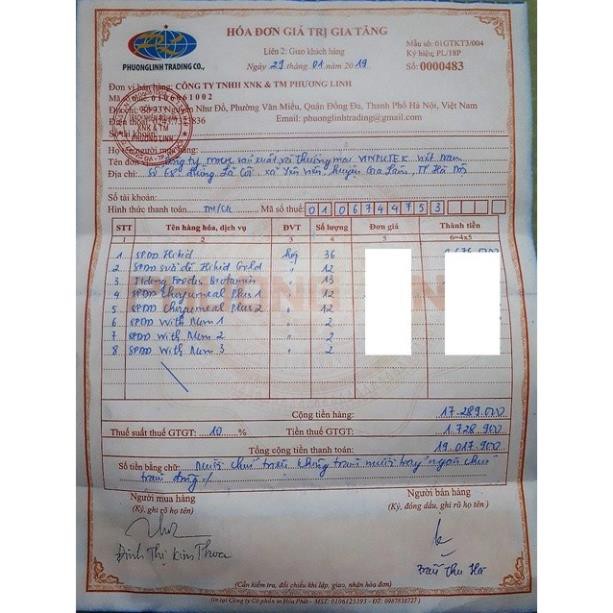 HÓA ĐƠN GIÁ TRỊ GIA TĂNG
Liên 2: Giao khách hàng
Ngày 29 tháng 01 năm 2019
Mẫu số: 01GTKT3/004
Ký hiệu: PL/18P
Số: 0000483
PHUONGLINH TRADING CO.,
Đơn vị bán hàng: CÔNG TY TNHH XNK & TM PHƯƠNG LINH
Mã số thuế: 0106961002
Nguyễn Như Đổ, Phường Văn Miếu, Quận Đống Đa, Thành Phố Hà Nội, Việt Nam
Điện thoại: Email: phuonglinhtrading@gmail.com
Số tài khoản:
Họ tên người mua hàng:
Tên đơn vị: Công ty sản xuất và thương mại Việt Nam
Địa chỉ: xã Yên Viên, huyện Gia Lâm, TP Hà Nội
Số tài khoản:
Hình thức thanh toán: TM/CK Mã số thuế: 0106744753
STT Tên hàng hóa, dịch vụ ĐVT Số lượng Đơn giá Thành tiền
1 2 3 4 5 6=4x5
1 SPDD Hikid 36
2 SPDD sữa dê Hikid Gold " 12
3 Ildong Foodis " 13
4 SPDD Plus 1 " 12
5 SPDD Plus 2 " 12
6 SPDD With Mum 1 " 2
7 SPDD With Mum 2 " 2
8 SPDD With Mum 3 " 2
Cộng tiền hàng: 17.289.000
Thuế suất thuế GTGT: 10 % Tiền thuế GTGT: 1.728.900
Tổng cộng tiền thanh toán: 19.017.900
Số tiền bằng chữ: Mười chín triệu không trăm mười bảy ngàn chín
trăm đồng
Người mua hàng Người bán hàng
(Ký, ghi rõ họ tên) (Ký, đóng dấu, ghi rõ họ tên)
Đinh Thị Kim Thoa
Trần Thu
(Cần kiểm tra, đối chiếu khi lập, giao, nhận hóa đơn)